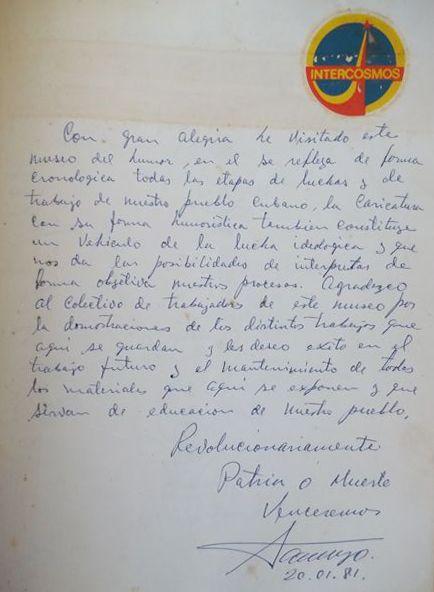 INTERCOSMOS
Con gran alegria he visitado este
museo del humor, en el se refleja de forma
cronologica todas las etapas de luchas y de
trabajo de nuestro pueblo cubano, la caricatura
con su forma humoristica tambien constituye
un vehículo de la lucha ideologica y que
nos da las posibilidades de interpretar de
forma objetiva nuestros procesos. Agradezco
al colectivo de trabajadores de este museo por
la demostraciones de los distintos trabajos que
aqui se guardan y les deseo exito en el
trabajo futuro y el mantenimiento de todos
los materiales que aqui se exponen y que
sirvan de educacion de nuestro pueblo.
Revolucionariamente
Patria o Muerte
Venceremos
20.01.81.